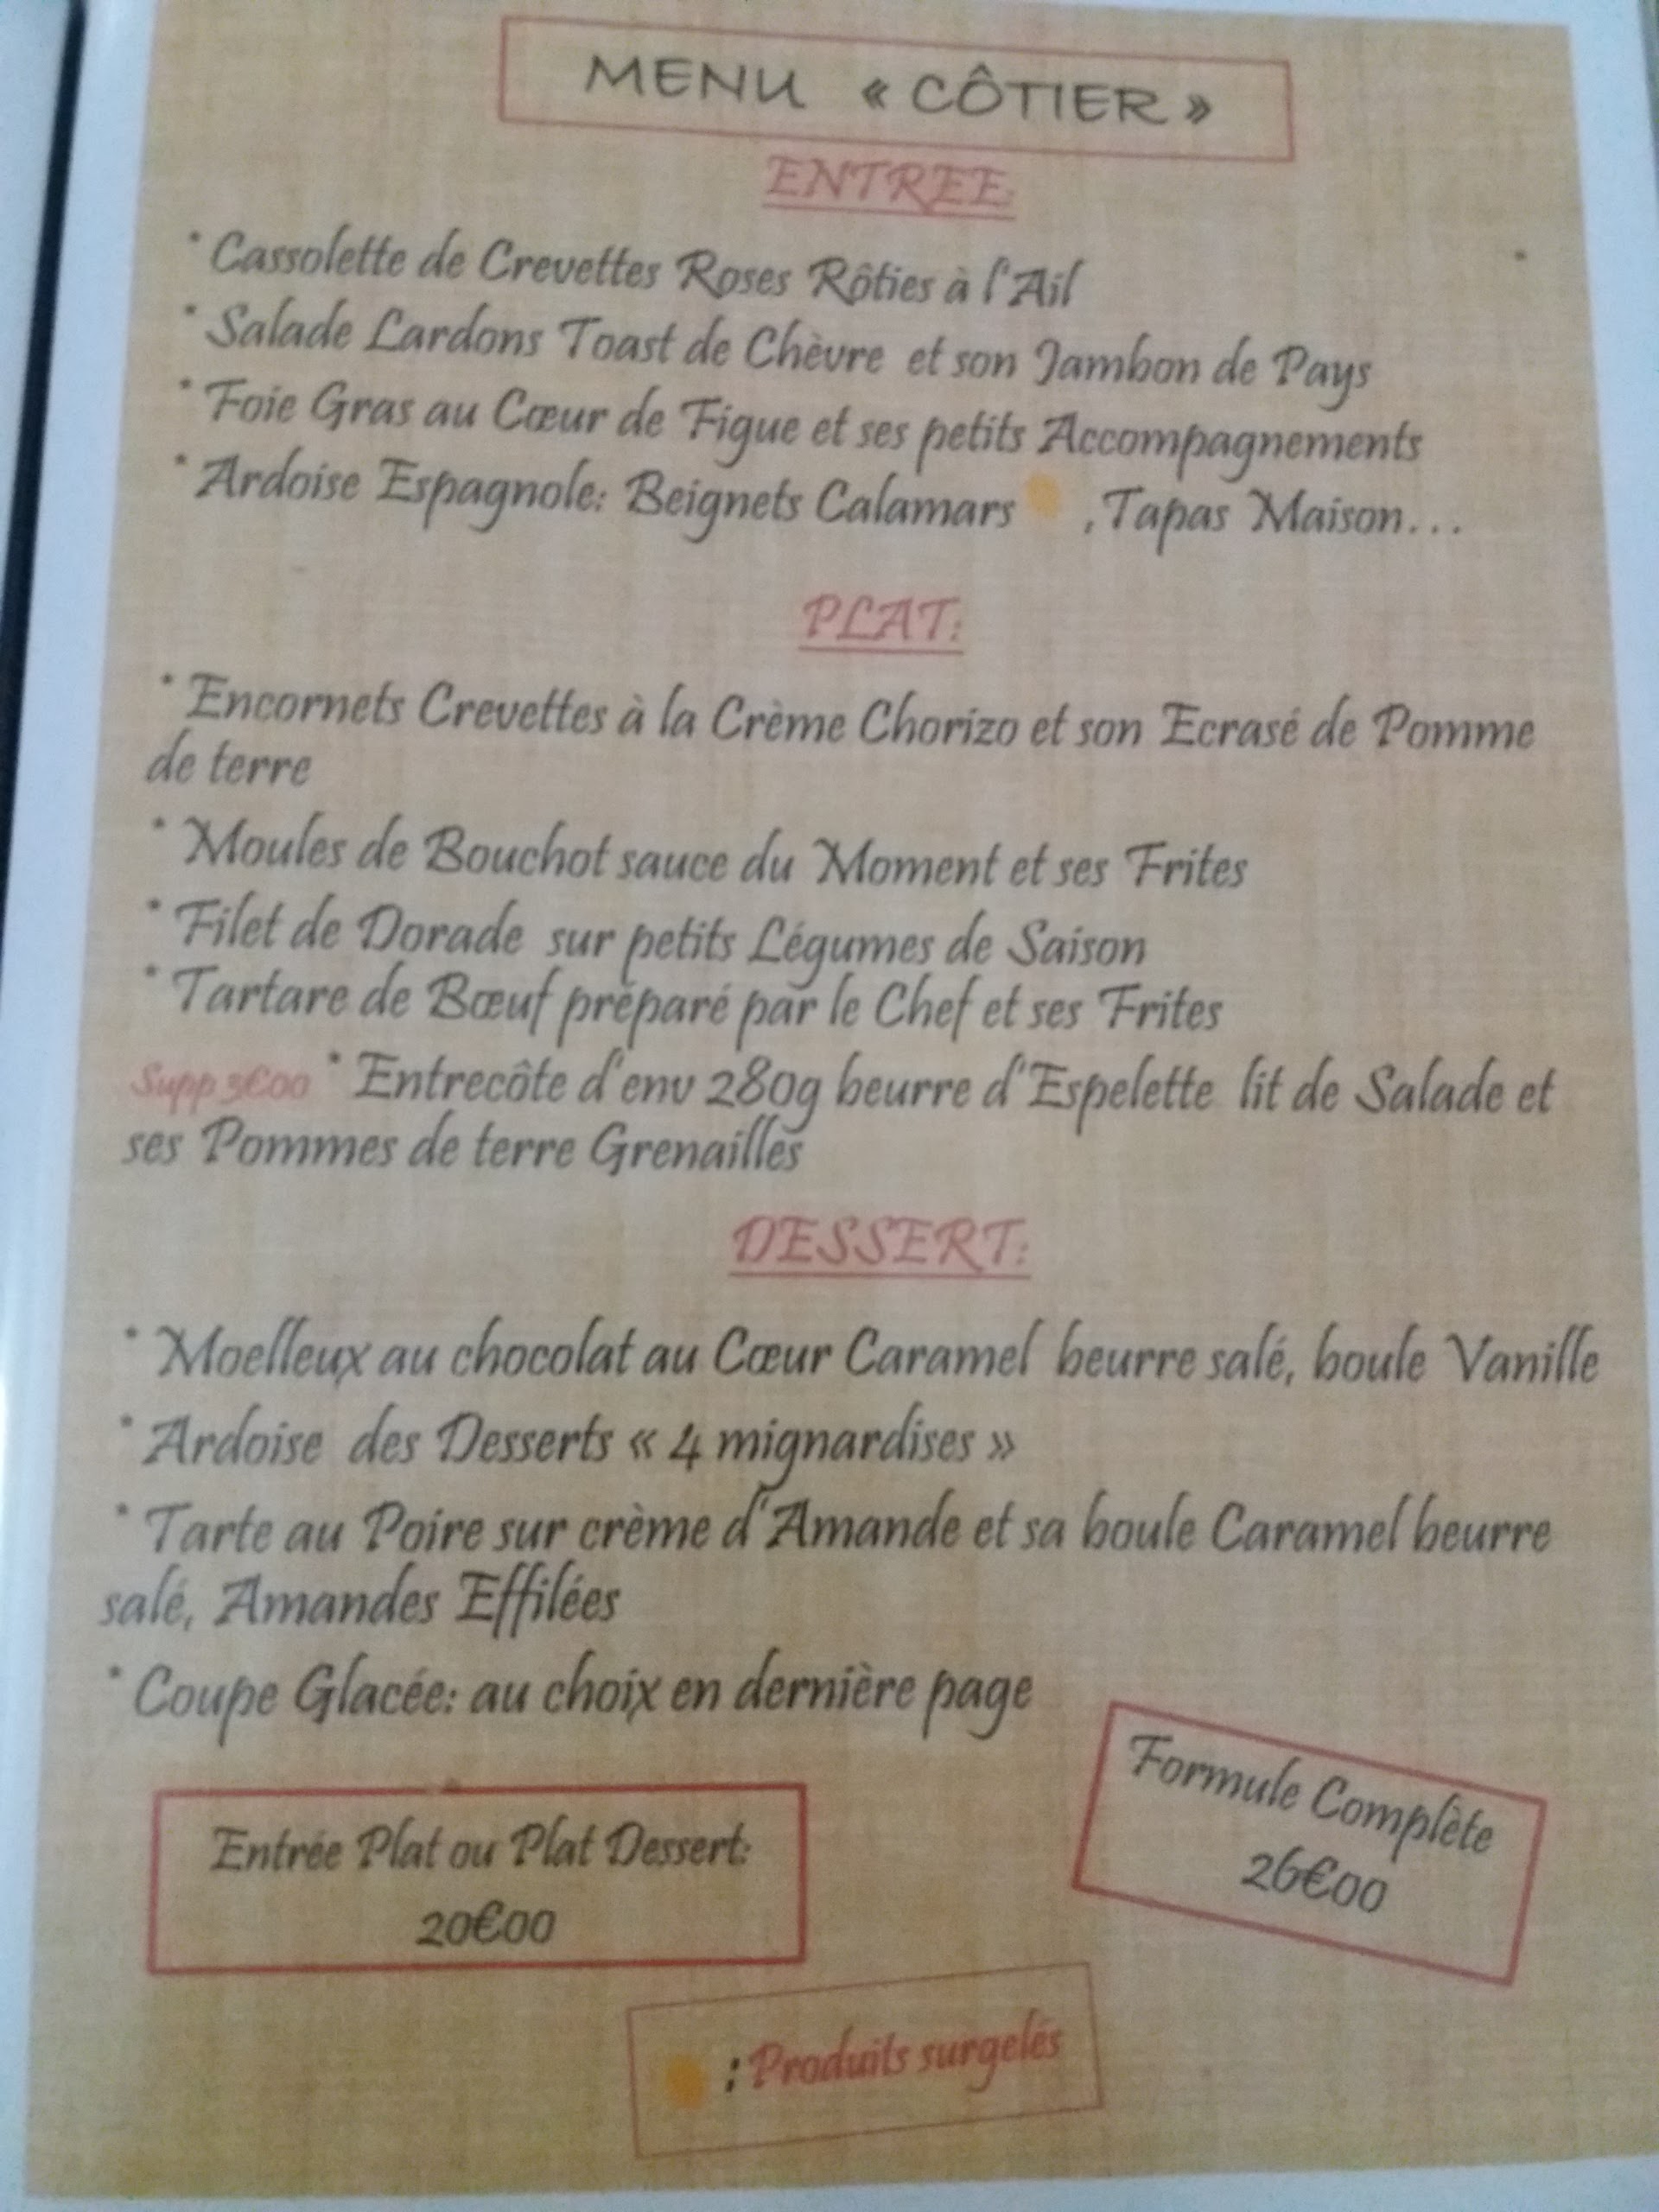 MENU « CÔTIER »
ENTREE:
* Cassolette de Crevettes Roses Rôties à l'Ail
* Salade Lardons Toast de Chèvre et son Jambon de Pays
* Foie Gras au Cœur de Figue et ses petits Accompagnements
* Ardoise Espagnole: Beignets Calamars , Tapas Maison...
PLAT:
* Encornets Crevettes à la Crème Chorizo et son Ecrasé de Pomme
de terre
* Moules de Bouchot sauce du Moment et ses Frites
* Filet de Dorade sur petits Légumes de Saison
* Tartare de Bœuf préparé par le Chef et ses Frites
Supp 3€00 * Entrecôte d'env 280g beurre d'Espelette lit de Salade et
ses Pommes de terre Grenailles
DESSERT:
* Moelleux au chocolat au Cœur Caramel beurre salé, boule Vanille
* Ardoise des Desserts « 4 mignardises »
* Tarte au Poire sur crème d'Amande et sa boule Caramel beurre
salé, Amandes Effilées
* Coupe Glacée: au choix en dernière page
Formule Complète
26€00
Entrée Plat ou Plat Dessert:
20€00
: Produits surgelés